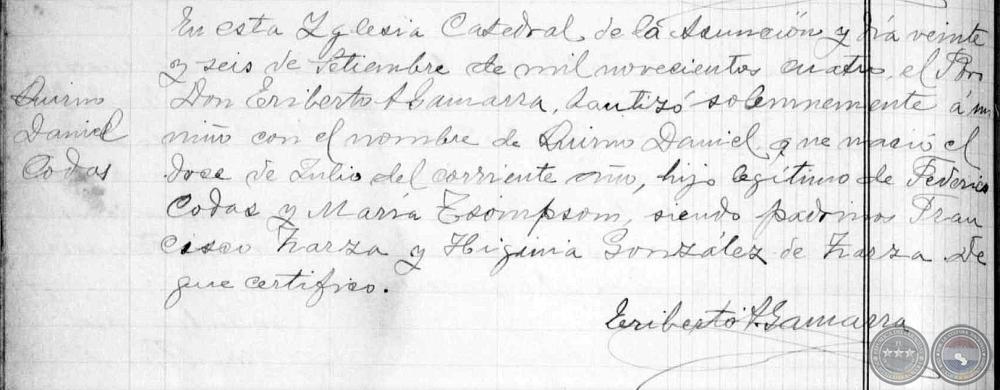 En esta Yglesia Catedral de la Asunción y día veinte
y seis de Setiembre de mil novecientos cuatro, el Pbro
Don Eriberto A Gamarra, bautizó solemnemente á un
niño con el nombre de Quirno Daniel, que nació el
doce de Julio del corriente año, hijo legítimo de Federico
Codas y María Tsompsom, siendo padrinos Fran
cisco Zarza y Higinia González de Zarza De
que certifico.
Eriberto A. Gamarra
Quirno
Daniel
Codas